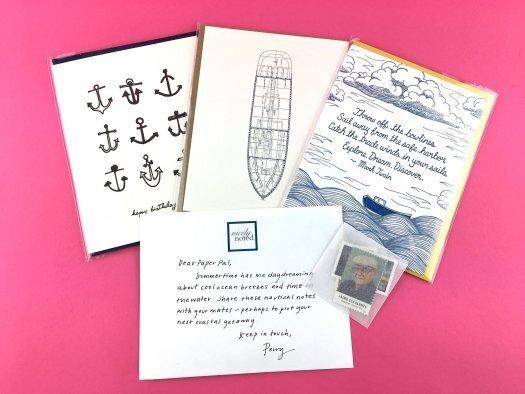 happy birthday
Throw off the bowlines.
Sail away from the safe harbor.
Catch the trade winds in your sails.
Explore. Dream. Discover.
~ Mark Twain
nicely
noted.
Dear Paper Pal,
Summertime has me daydreaming
about cool ocean breezes and time on
the water. Share these nautical notes
with your mates – perhaps to plot your
next coastal getaway.
Keep in touch,
Perry
JAIME ESCALANTE